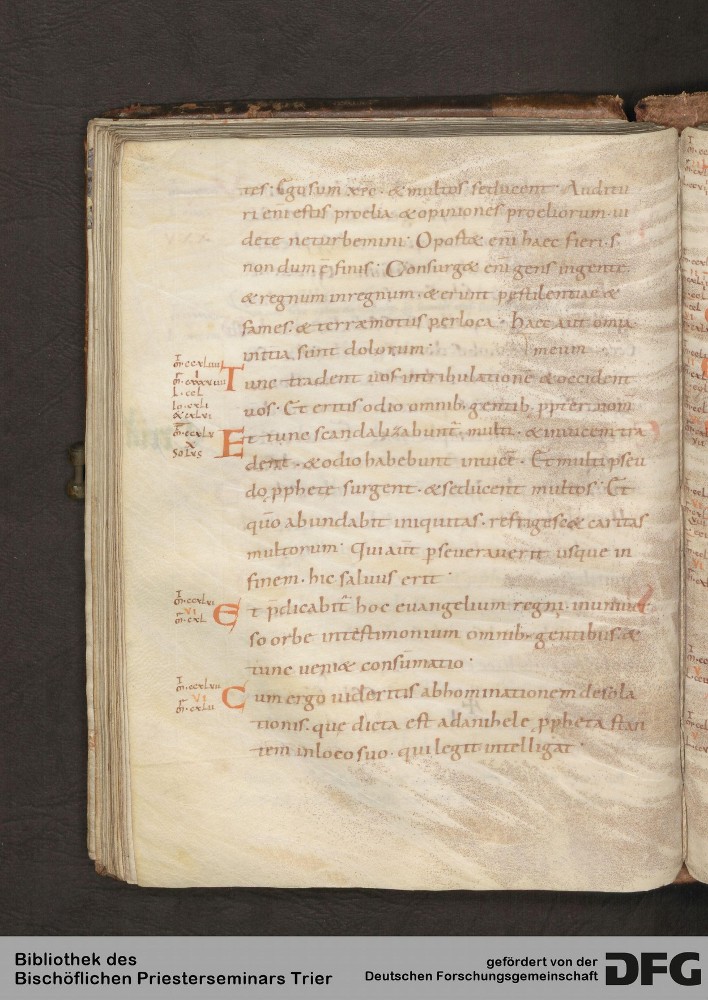 tes; Ego sum xp̄c. & multos seducent. Auditu
ri eni estis proelia & opiniones proeliorum. ui
dete ne turbemini. Oport& eni haec fieri. s;
nondum ē finis. Consurg& eni gens in gente.
& regnum in regnum. & erunt pestilentiae &
fames. & terrae motus per loca. haec aut omia
initia sunt dolorum.
meum
Tunc tradent uos in tribulatione & occident
uos. Et eritis odio omnib. gentib. ppter nom
Et tunc scandalizabunt multi. & inuicem tra
dent. & odio habebunt inuicē. Et multi pseu
do pphete surgent. & seducent multos. Et
qūo abundabit iniquitas. refrigesc& caritas
multorum. Qui aut pseuerauerit usque in
finem. hic saluus erit.
Et p̄dicabit hoc euangelium regni. in uniuer
so orbe in testimonium omnib. gentibus. &
tunc ueni& consūmatio.
Cum ergo uideritis abhominationem desola
tionis. que dicta est a danihele ppheta stan
tem in loco suo. qui legit intelligat.
Bibliothek des
Bischöflichen Priesterseminars Trier
gefördert von der
Deutschen Forschungsgemeinschaft
DFG